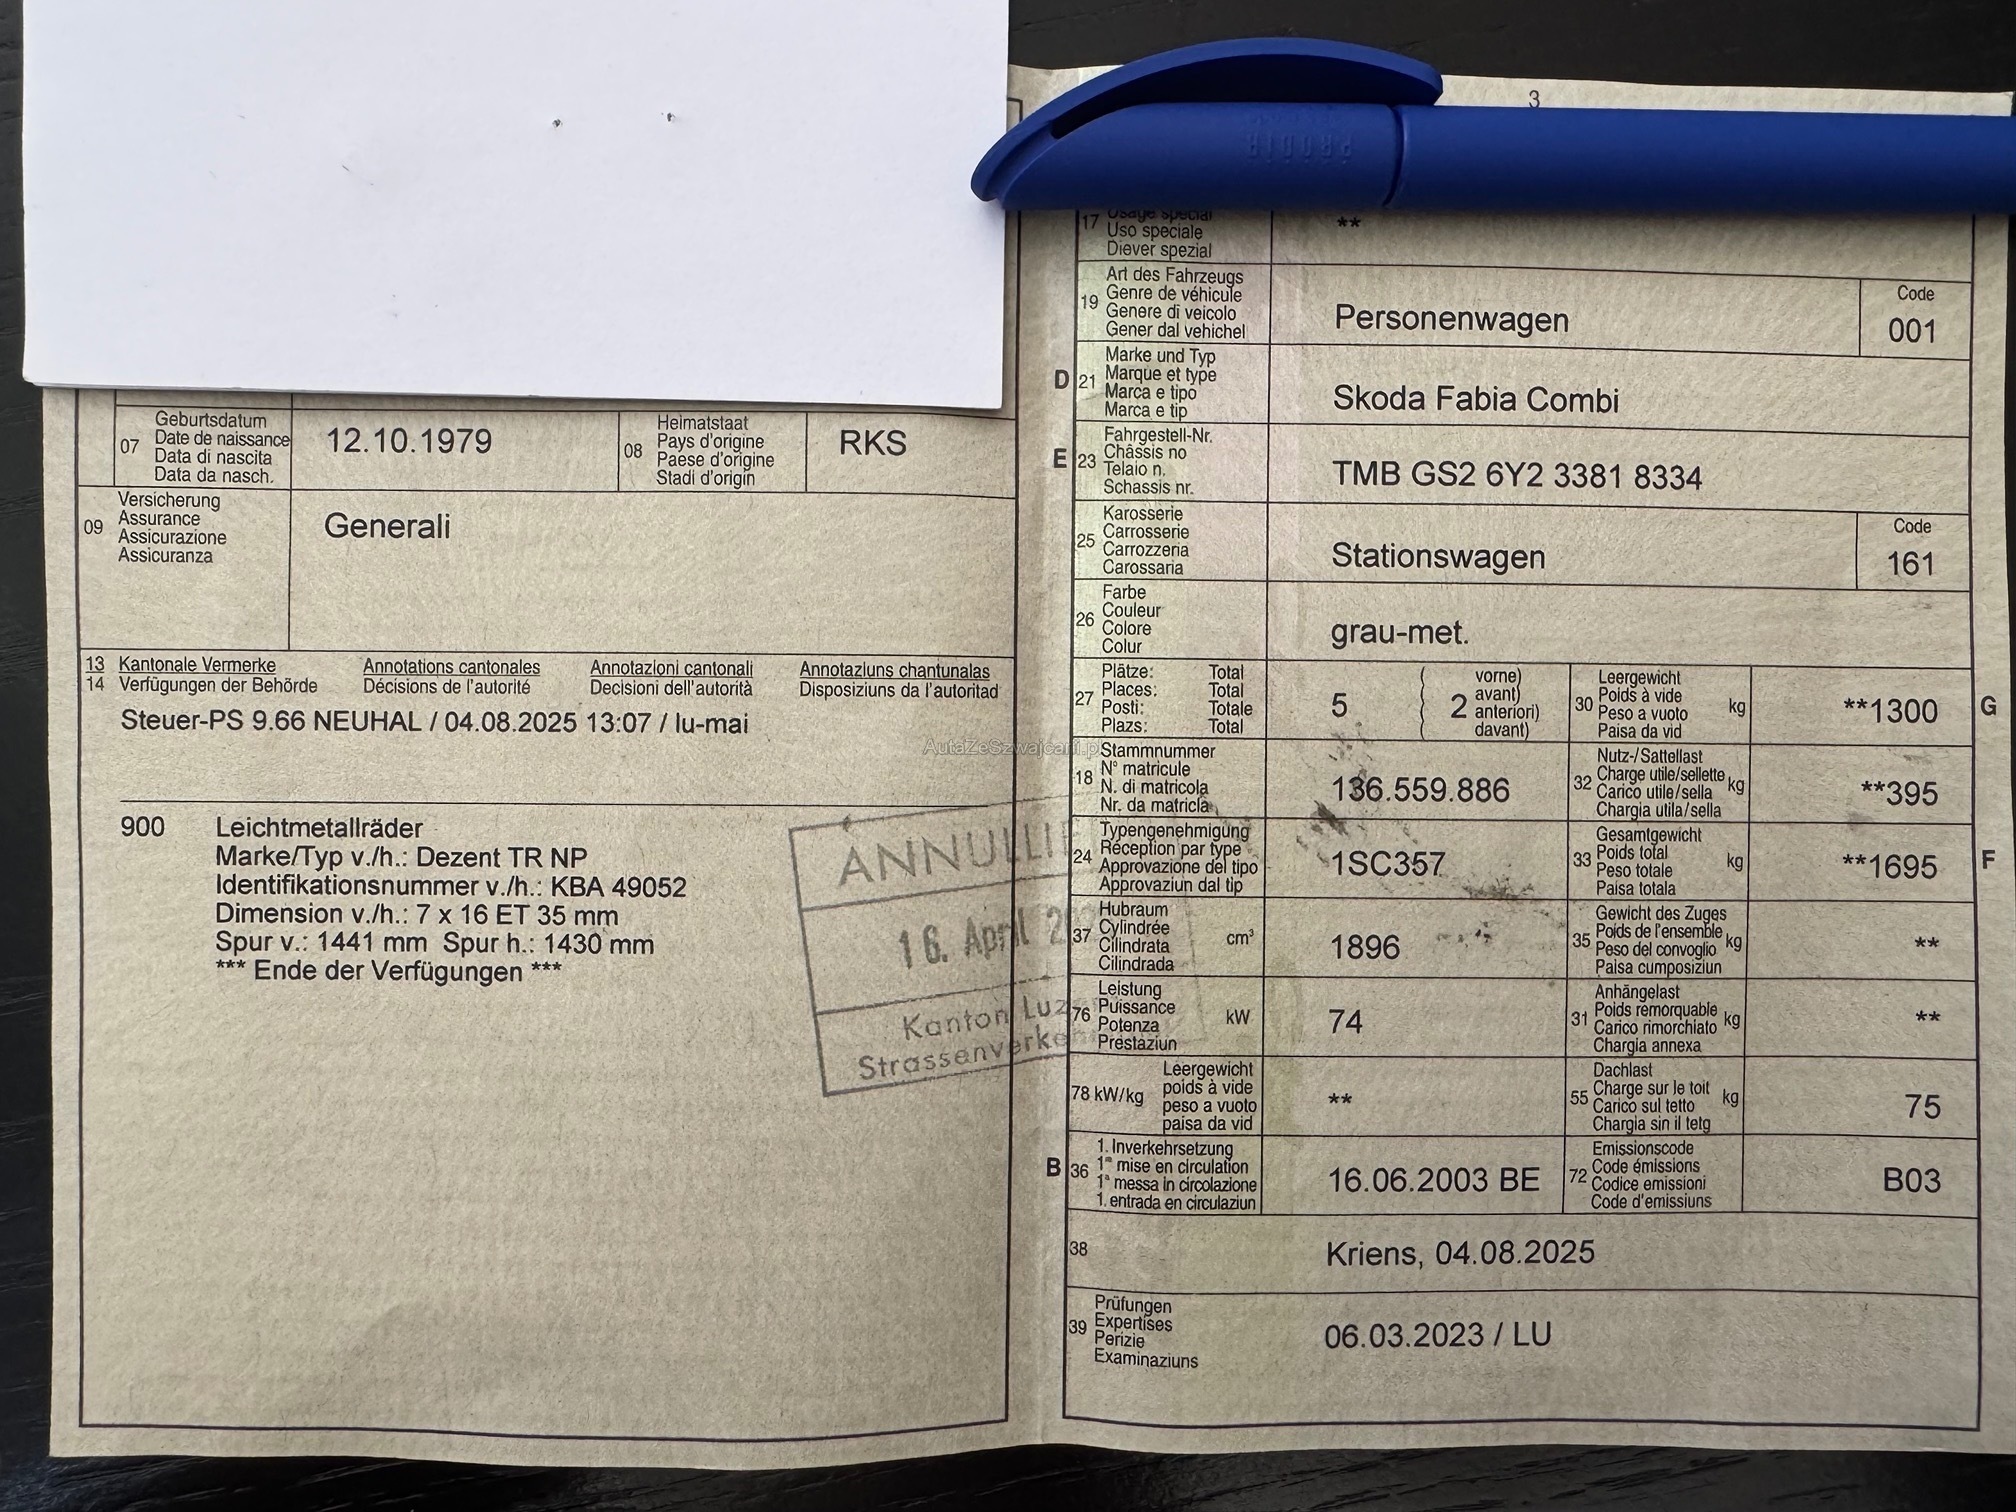 PRODIR
3
17 Usage spécial
Uso speciale
Diever spezial
**
19 Art des Fahrzeugs
Genre de véhicule
Genere di veicolo
Gener dal vehichel
Personenwagen
Code
001
D 21 Marke und Typ
Marque et type
Marca e tipo
Marca e tip
Skoda Fabia Combi
07 Geburtsdatum
Date de naissance
Data di nascita
Data da nasch.
12.10.1979
08 Heimatstaat
Pays d'origine
Paese d'origine
Stadi d'origin
RKS
E 23 Fahrgestell-Nr.
Châssis no
Telaio n.
Schassis nr.
TMB GS2 6Y2 3381 8334
09 Versicherung
Assurance
Assicurazione
Assicuranza
Generali
25 Karosserie
Carrosserie
Carrozzeria
Carossaria
Stationswagen
Code
161
26 Farbe
Couleur
Colore
Colur
grau-met.
13 Kantonale Vermerke Annotations cantonales Annotazioni cantonali Annotaziuns chantunalas
14 Verfügungen der Behörde Décisions de l'autorité Decisioni dell'autorità Disposiziuns da l'autoritad
Steuer-PS 9.66 NEUHAL / 04.08.2025 13:07 / lu-mai
900 Leichtmetallräder
Marke/Typ v./h.: Dezent TR NP
Identifikationsnummer v./h.: KBA 49052
Dimension v./h.: 7 x 16 ET 35 mm
Spur v.: 1441 mm Spur h.: 1430 mm
*** Ende der Verfügungen ***
ANNULLI
16. April
Kanton Luz
Strassenverke
AutaZeSzwajcarii.p
27 Plätze: Total
Places: Total
Posti: Totale
Plazs: Total
5
2
vorne)
avant)
anteriori)
davant)
30 Leergewicht
Poids à vide
Peso a vuoto
Paisa da vid
kg
**1300
G
18 Stammnummer
N° matricule
N. di matricola
Nr. da matricla
136.559.886
32 Nutz-/Sattellast
Charge utile/sellette
Carico utile/sella
Chargia utila/sella
kg
**395
24 Typengenehmigung
Réception par type
Approvazione del tipo
Approvaziun dal tip
1SC357
33 Gesamtgewicht
Poids total
Peso totale
Paisa totala
kg
**1695
F
37 Hubraum
Cylindrée
Cilindrata
Cilindrada
cm³
1896
35 Gewicht des Zuges
Poids de l'ensemble
Peso del convoglio
Paisa cumposiziun
kg
**
76 Leistung
Puissance
Potenza
Prestaziun
kW
74
31 Anhängelast
Poids remorquable
Carico rimorchiato
Chargia annexa
kg
**
78 kW/kg
Leergewicht
poids à vide
peso a vuoto
paisa da vid
**
55 Dachlast
Charge sur le toit
Carico sul tetto
Chargia sin il tetg
kg
75
B 36 1. Inverkehrsetzung
1re mise en circulation
1a messa in circolazione
1. entrada en circulaziun
16.06.2003 BE
72 Emissionscode
Code émissions
Codice emissioni
Code d'emissiuns
B03
38
Kriens, 04.08.2025
39 Prüfungen
Expertises
Perizie
Examinaziuns
06.03.2023 / LU